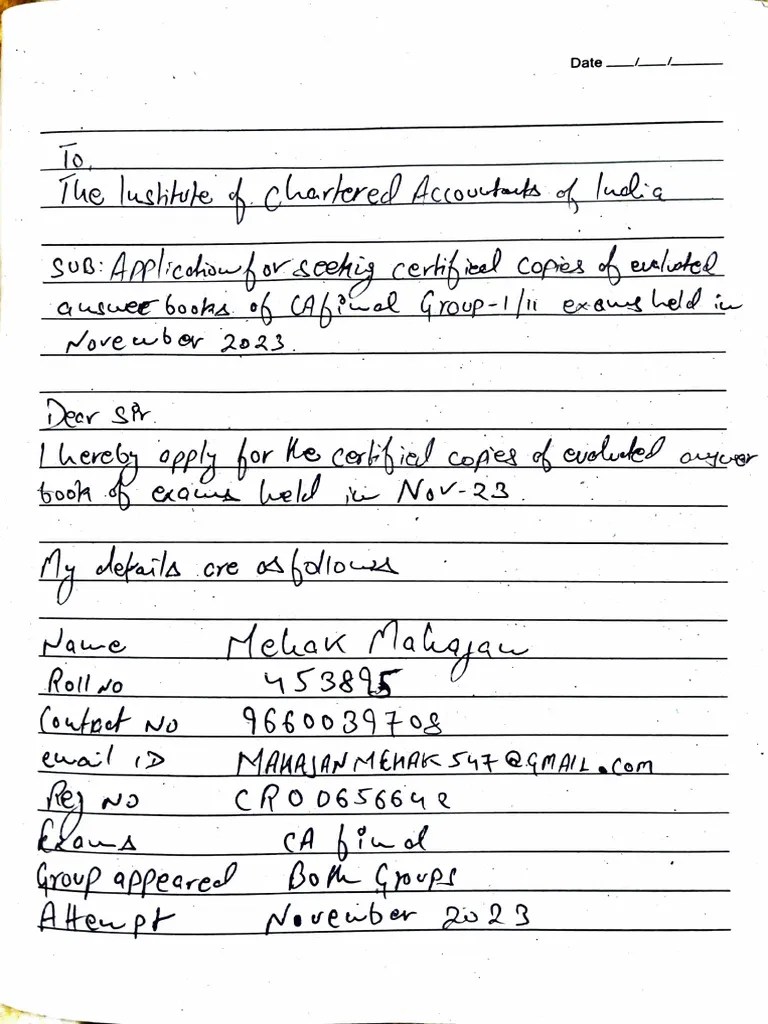 Date ___/___/______
To,
The Institute of Chartered Accountants of India
SUB: Application for seeking certified copies of evaluated
answer books of CA final Group-I/II exams held in
November 2023.
Dear Sir.
I hereby apply for the certified copies of evaluated answer
book of exams held in Nov-23.
My details are as follows
Name Mehak Mahajan
Roll No 453895
Contact No 9660039708
email ID MAHAJANMEHAK547@GMAIL.com
Reg No CRO0656642
Exams CA final
Group appeared Both Groups
Attempt November 2023